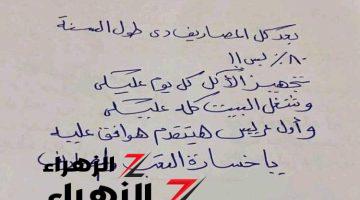 بعد كل المصاريف دى طول السنة
٨٠٪ بس !!
تجهيز الأكل كل يوم عليكى
وشغل البيت كله عليكى
وأول عريس هيتقدم هوافق عليه
يا خسارة التعب
الزهراء
الزهراء